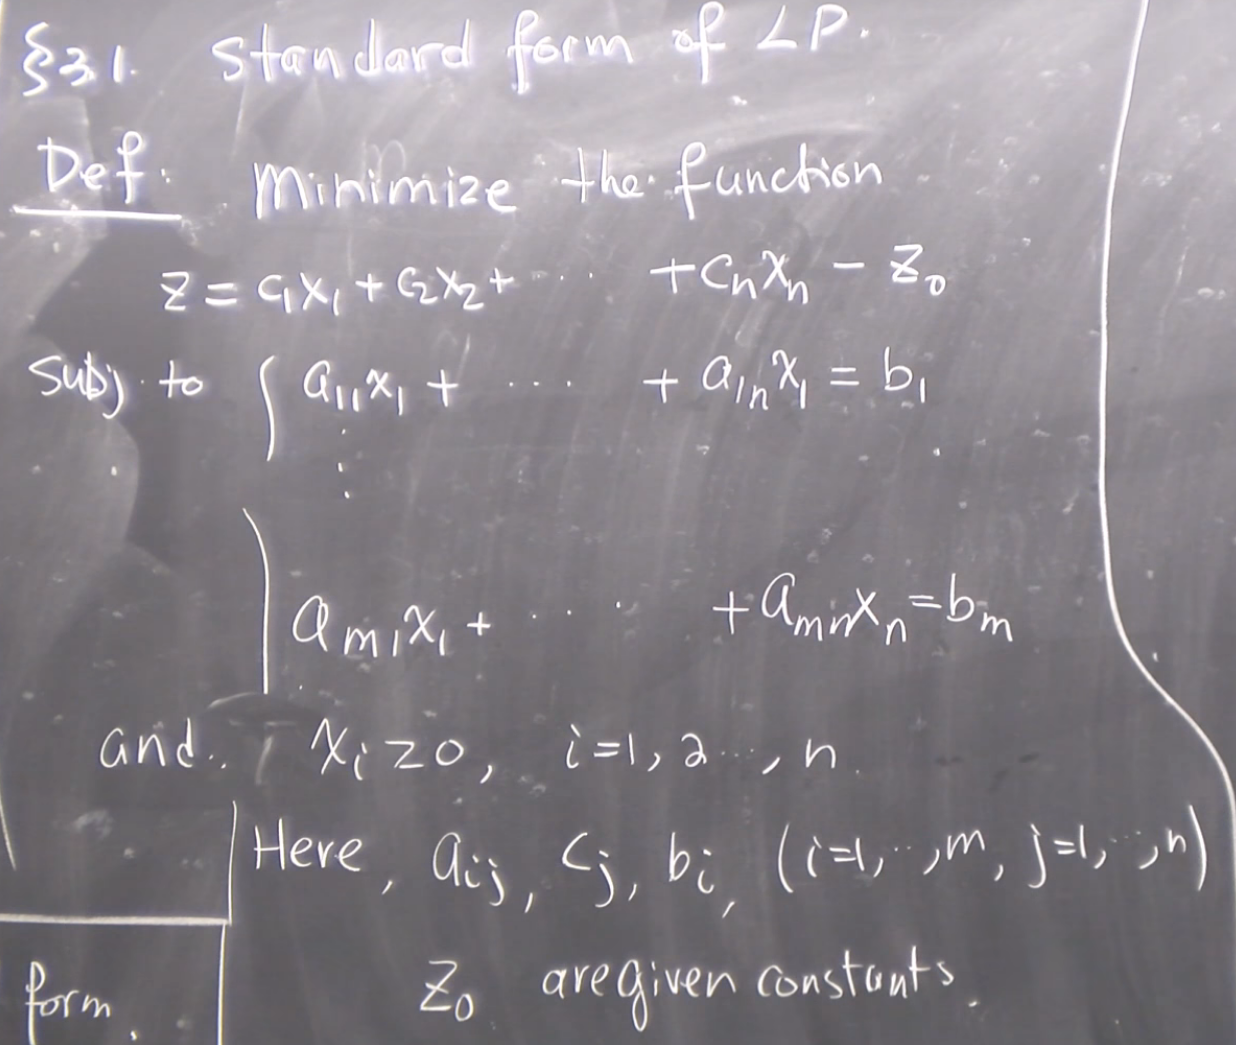 §3.1. Standard form of LP.
Def. Minimize the function
z = c₁x₁ + c₂x₂ + ... + cₙxₙ - z₀
subj. to { a₁₁x₁ + ... + a₁ₙx₁ = b₁
⋮
aₘ₁x₁ + ... + aₘₙxₙ = bₘ
and. xᵢ ≥ 0, i=1, 2 ..., n.
Here, aᵢⱼ, cⱼ, bᵢ, (i=1, .., m, j=1, .., n)
z₀ are given constants.
form.